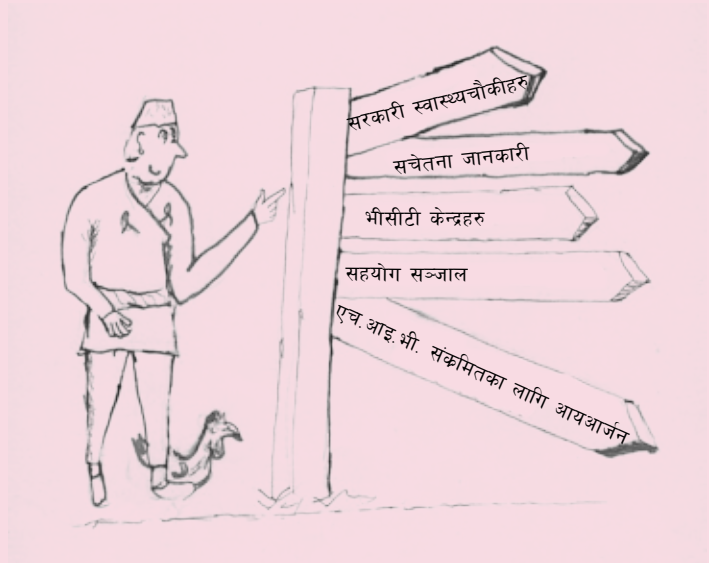 सरकारी स्वास्थ्यचौकीहरु
सचेतना जानकारी
भीसीटी केन्द्रहरु
सहयोग सञ्जाल
एच.आइ.भी. संक्रमितका लागि आयआर्जन